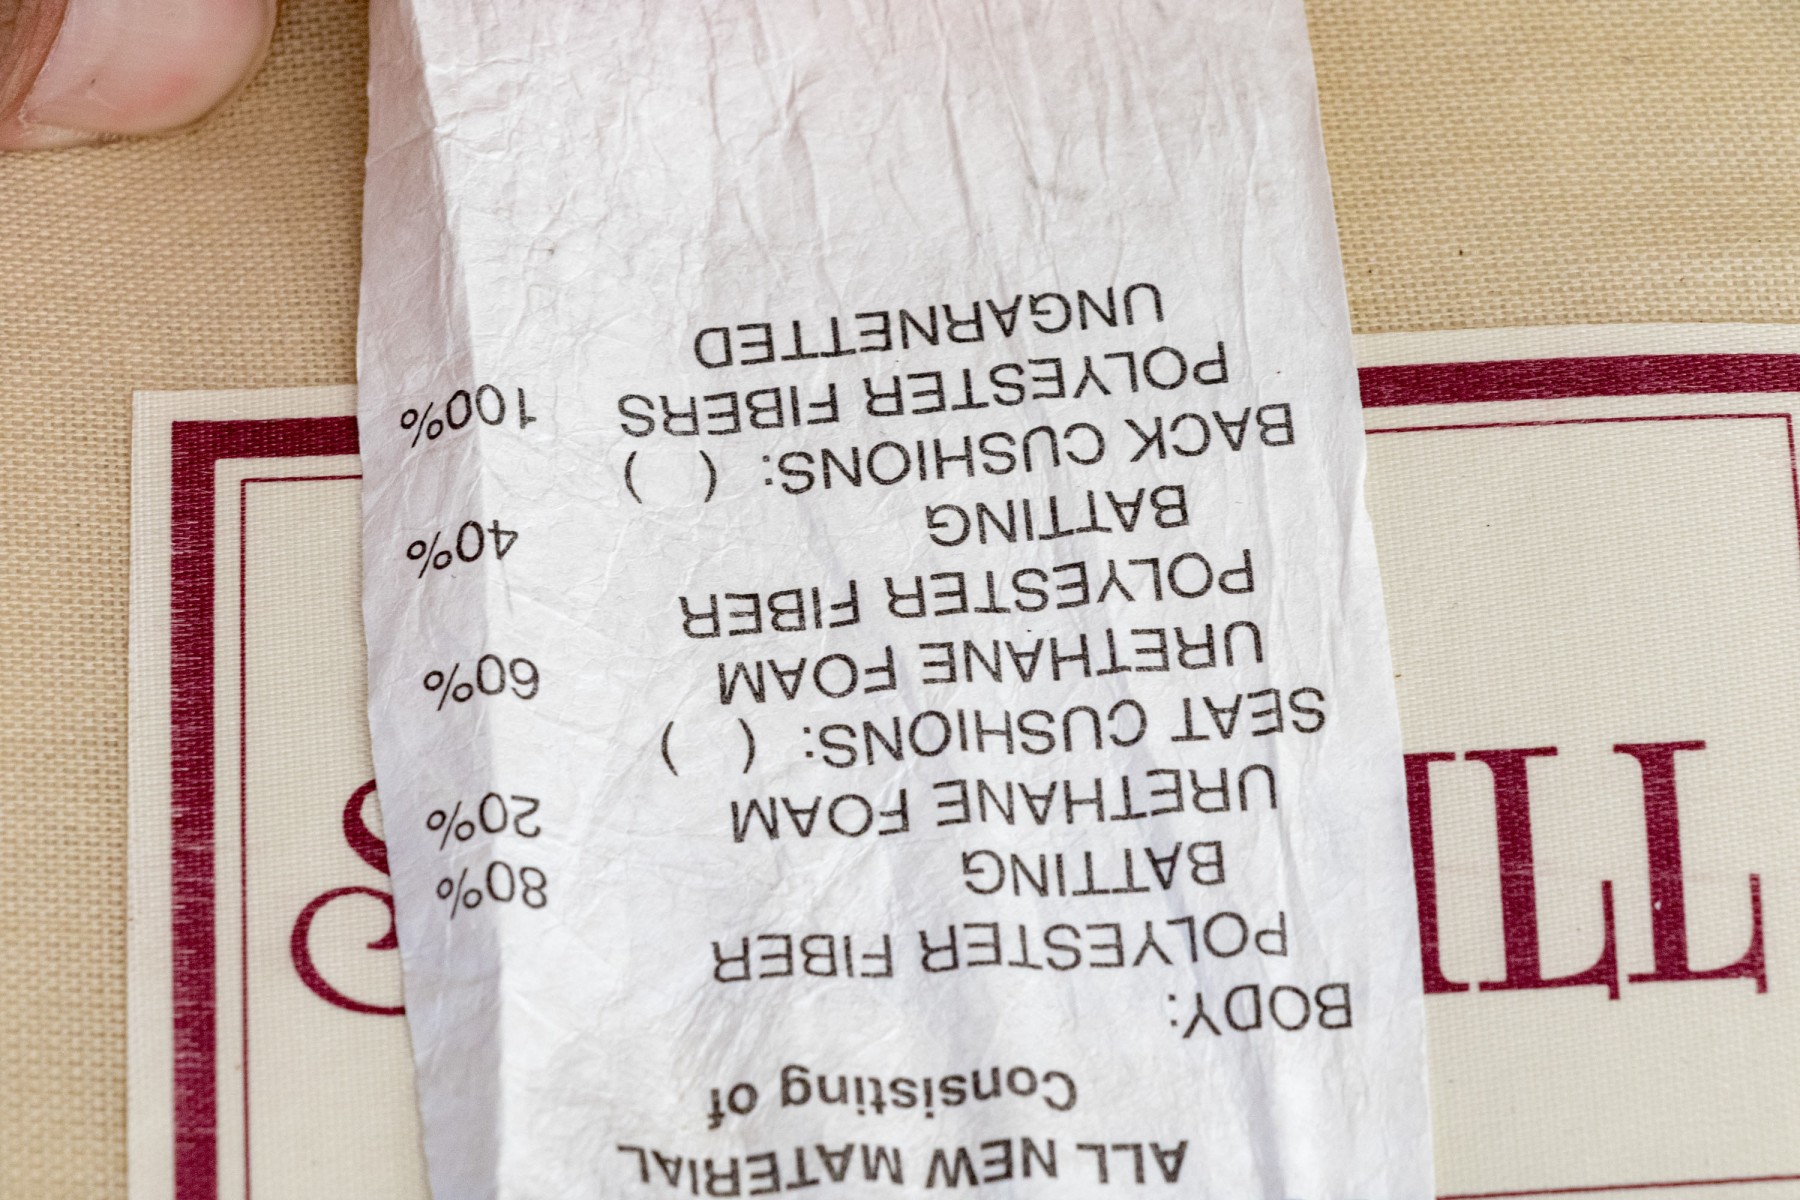 ALL NEW MATERIAL
Consisting of
BODY:
POLYESTER FIBER
BATTING 80%
URETHANE FOAM 20%
SEAT CUSHIONS: ( )
URETHANE FOAM 60%
POLYESTER FIBER
BATTING 40%
BACK CUSHIONS: ( )
POLYESTER FIBERS 100%
UNGARNETTED